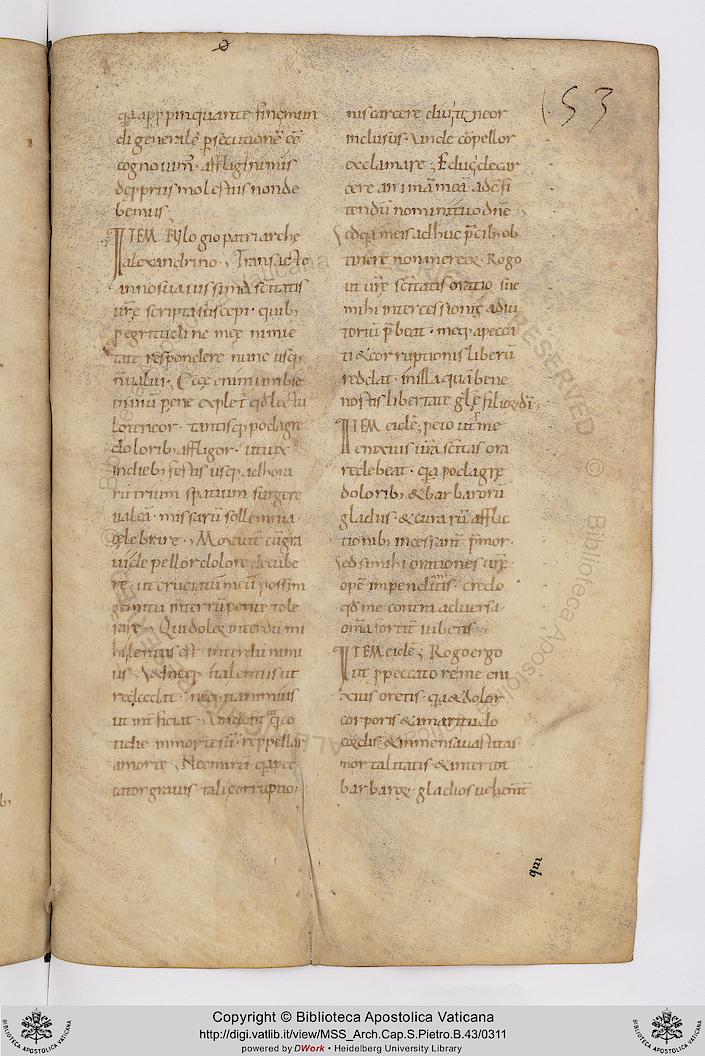 53
qa appinquante fine mun
di generale psecutione ee
cognouim affligi nimis
de pprius molestiis non de
bemus
ITEM Eulogio patriarche
alexandrino Transacto
anno suauissima scitatis
ure scripta suscepi quib;
p egritudine mee nimie
tate respondere nunc usq;
n ualui Ecce enim
enniu pene expletu qd lectu
lo teneor tantisq; podagre
dolorib; affligor ut uix
in dieb; festis usq; ad hora
ru trium spatium surgere
ualea missaru sollemnia
celebrare Mox aut cu gra
ui de pellor dolore decube
re ut cruciatu meu possim
gemitu interrupente tole
rare Qui dolor interdu mi
hi lentus est interdu nimi
us Et neq; ita lentus ut
recedat neq; ita nimius
ut int ficiat Unde fit q co
tidie in morte su reppellar
a morte Nec miru qa pec
cator grauis tali corruptio
nis carcere
inclusus Unde copellor
exclamare Educ de car
cere anima mea ad cfi
tendu nomini tuo dne
Sed qa meis adhuc pcib; ob
tinere non mereor Rogo
ut ure scitatis oratio sue
mihi intercessionis adiu
toriu pbeat meq; a pecca
ti & corruptionis liberu
reddat in illa qua bene
nostis libertate gle filioru di
ITEM eide peto ut p me
enixius ura scitas ora
re debeat qa podagre
dolorib; & barbaroru
gladiis & curaru afflic
tionib; incessant pmor
Sed si mihi orationes ure
ope impenditis credo
qd me contra aduersa
oma fortiu uibetis
ITEM eide Rogo ergo
ut p peccatore me eni
xius oretis qa & dolor
corporis & amaritudo
cordis & inmensa uastitas
mortalitatis & inter tot
barbaror gladios uehem
qui
Copyright © Biblioteca Apostolica Vaticana
http://digi.vatlib.it/view/MSS_Arch.Cap.S.Pietro.B.43/0311
powered by DWork • Heidelberg University Library